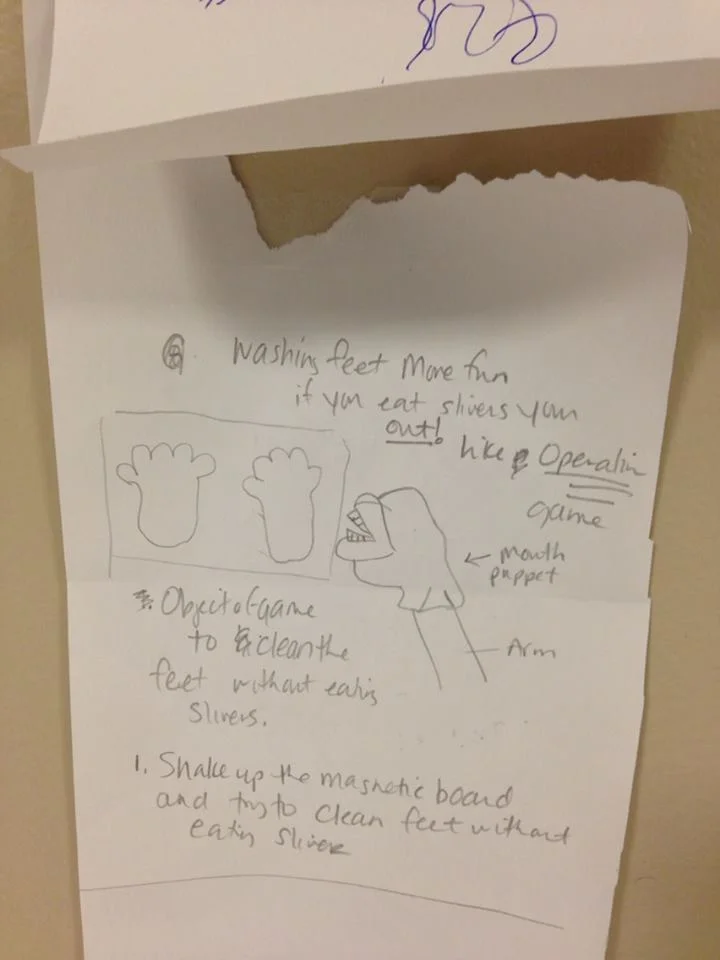 Washing feet More fun
if you eat slivers your
out! like Operation
game
← Mouth
puppet
Arm
Object of game
to clean the
feet without eating
Slivers.
1. Shake up the magnetic board
and try to clean feet without
eating sliver